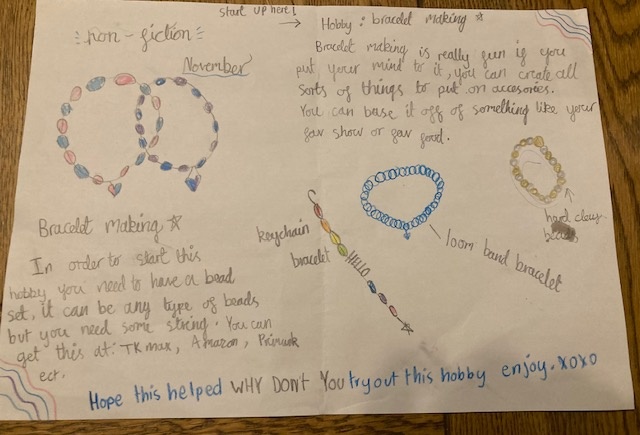 non-fiction
November
start up here!
Hobby: bracelet making
Bracelet making is really fun if you
put your mind to it, you can create all
sorts of things to put on accesories.
You can base it off of something like your
fav show or fav food.
hard clay
loom band bracelet
keychain
bracelet
HELLO
Bracelet Making
In order to start this
hobby you need to have a bead
set, it can be any type of beads
but you need some string. You can
get this at: TK max, Amazon, Primark
ect.
Hope this helped WHY DON'T YOU try out this hobby enjoy. xoxo